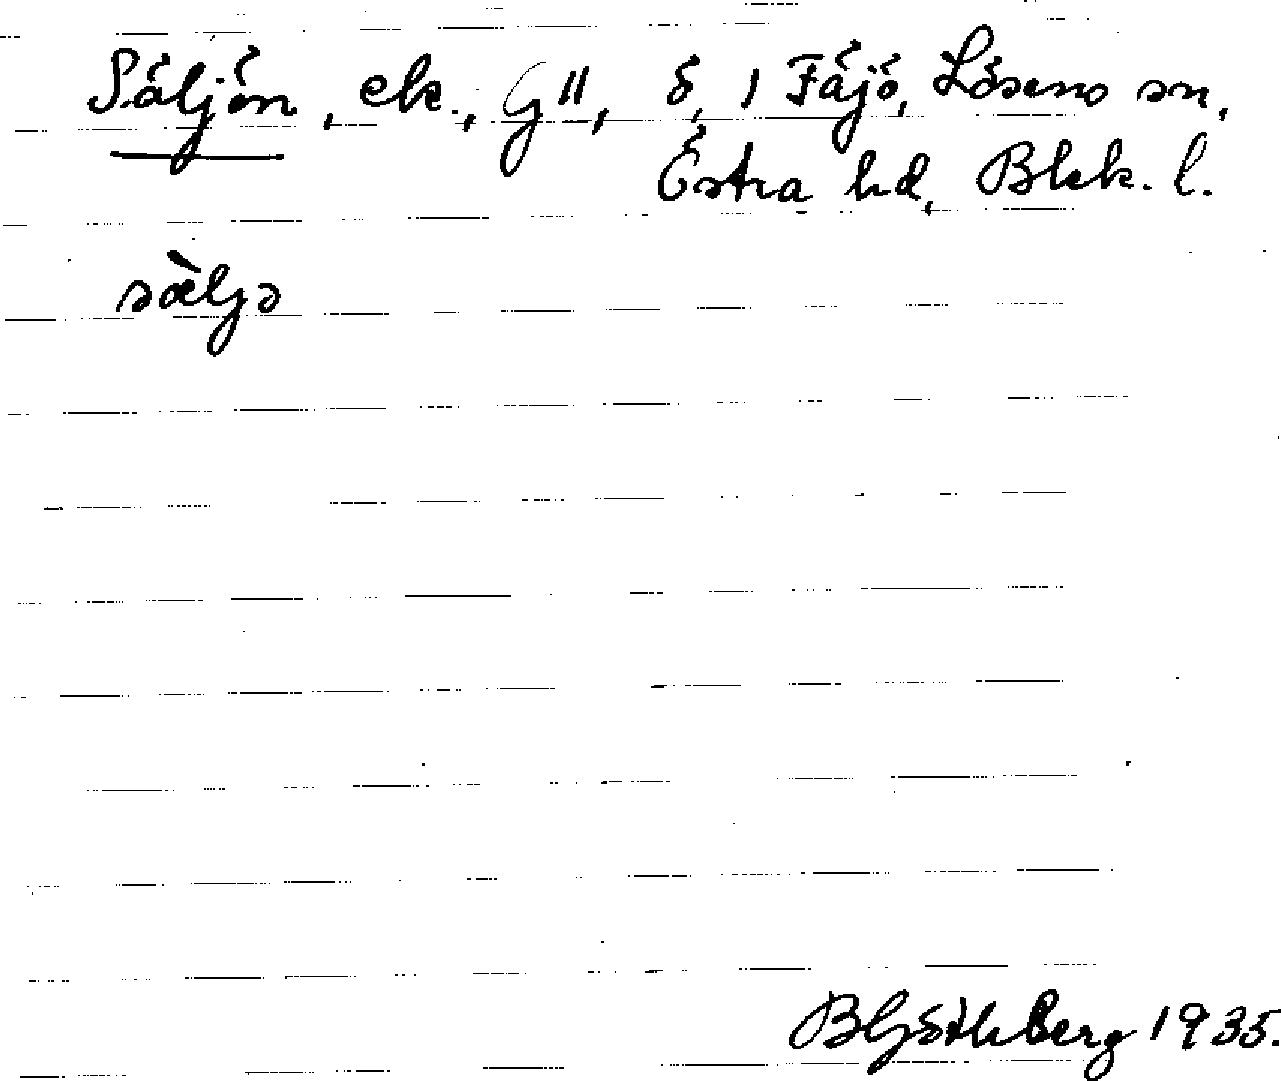 Säljön, ek., G11, ö, i Fäjö, Lösens sn,
Östra hd, Blek. l.
sæ̀ljə
B Göthberg 1935.